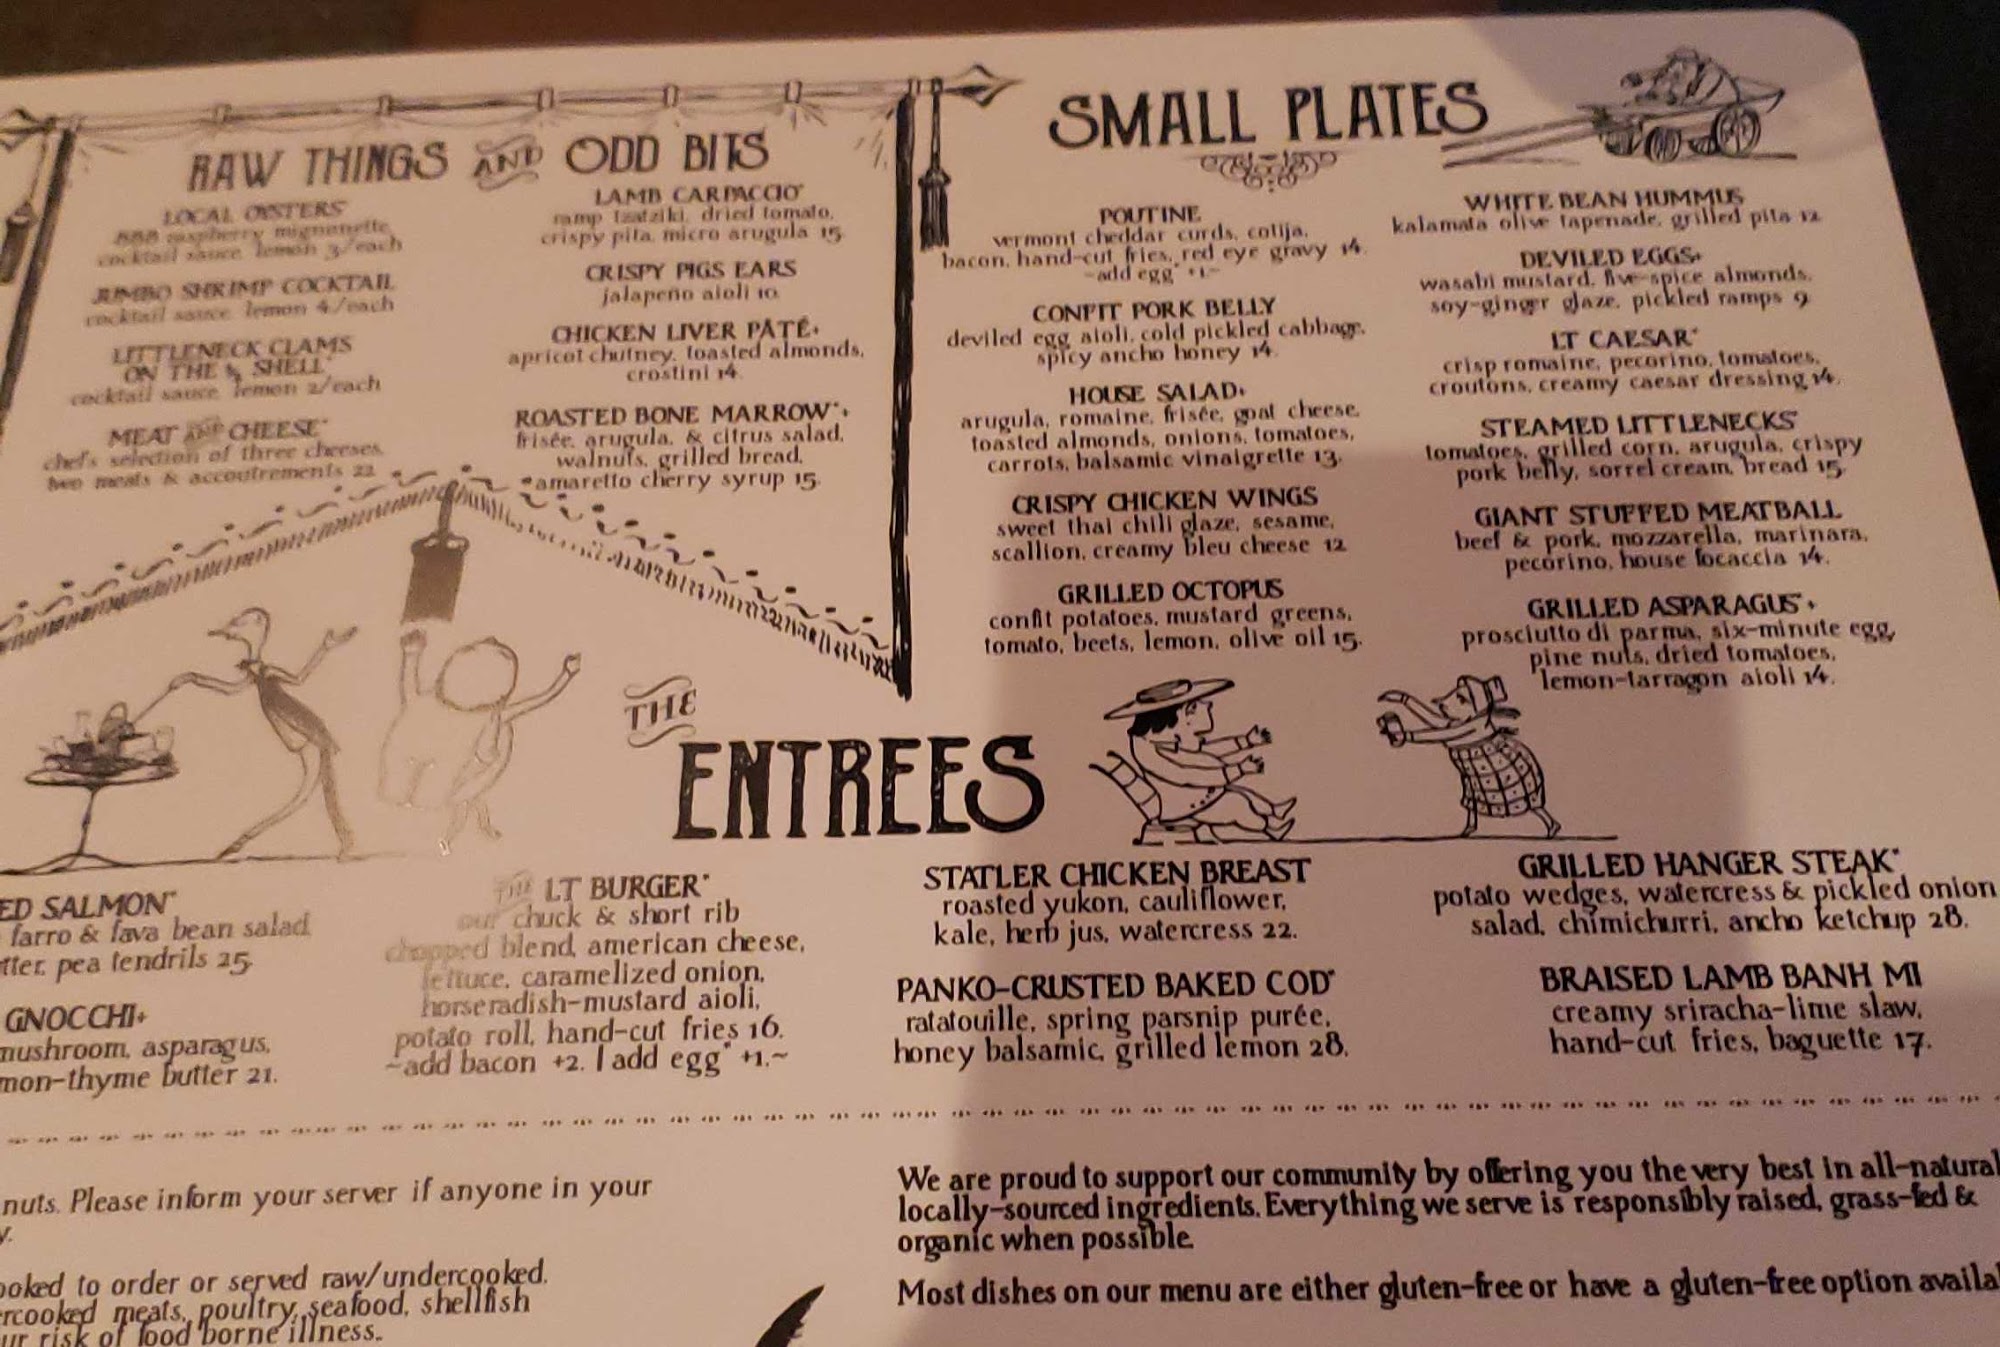 RAW THINGS AND ODD BITS
LOCAL OYSTERS*
888 raspberry mignonette,
cocktail sauce, lemon 3/each
JUMBO SHRIMP COCKTAIL
cocktail sauce, lemon 4/each
LITTLENECK CLAMS
ON THE ½ SHELL*
cocktail sauce, lemon 2/each
MEAT AND CHEESE*
chef's selection of three cheeses,
two meats & accoutrements 22
LAMB CARPACCIO*
ramp tzatziki, dried tomato,
crispy pita, micro arugula 15.
CRISPY PIGS EARS
jalapeño aioli 10.
CHICKEN LIVER PÂTÉ+
apricot chutney, toasted almonds,
crostini 14.
ROASTED BONE MARROW*+
frisée, arugula, & citrus salad,
walnuts, grilled bread,
amaretto cherry syrup 15.
SMALL PLATES
POUTINE
vermont cheddar curds, cotija,
bacon, hand-cut fries, red eye gravy 14.
~add egg* +1~
CONFIT PORK BELLY
deviled egg aioli, cold pickled cabbage,
spicy ancho honey 14.
HOUSE SALAD+
arugula, romaine, frisée, goat cheese,
toasted almonds, onions, tomatoes,
carrots, balsamic vinaigrette 13.
CRISPY CHICKEN WINGS
sweet thai chili glaze, sesame,
scallion, creamy bleu cheese 12
GRILLED OCTOPUS
confit potatoes, mustard greens,
tomato, beets, lemon, olive oil 15.
WHITE BEAN HUMMUS
kalamata olive tapenade, grilled pita 12
DEVILED EGGS+
wasabi mustard, five-spice almonds,
soy-ginger glaze, pickled ramps 9
LT CAESAR*
crisp romaine, pecorino, tomatoes,
croutons, creamy caesar dressing 14.
STEAMED LITTLENECKS*
tomatoes, grilled corn, arugula, crispy
pork belly, sorrel cream, bread 15.
GIANT STUFFED MEATBALL
beef & pork, mozzarella, marinara,
pecorino, house focaccia 14.
GRILLED ASPARAGUS*+
prosciutto di parma, six-minute egg,
pine nuts, dried tomatoes,
lemon-tarragon aioli 14.
THE
ENTREES
ED SALMON*
farro & fava bean salad,
tter, pea tendrils 25.
GNOCCHI+
mushroom, asparagus,
mon-thyme butter 21.
THE LT BURGER*
our chuck & short rib
chopped blend, american cheese,
lettuce, caramelized onion,
horseradish-mustard aioli,
potato roll, hand-cut fries 16.
~add bacon +2. | add egg* +1.~
STATLER CHICKEN BREAST
roasted yukon, cauliflower,
kale, herb jus, watercress 22.
PANKO-CRUSTED BAKED COD*
ratatouille, spring parsnip purée,
honey balsamic, grilled lemon 28.
GRILLED HANGER STEAK*
potato wedges, watercress & pickled onion
salad, chimichurri, ancho ketchup 28.
BRAISED LAMB BANH MI
creamy sriracha-lime slaw,
hand-cut fries, baguette 17.
nuts. Please inform your server if anyone in your
y.
ooked to order or served raw/undercooked.
ercooked meats, poultry, seafood, shellfish
ur risk of food borne illness.
We are proud to support our community by offering you the very best in all-natural
locally-sourced ingredients. Everything we serve is responsibly raised, grass-fed &
organic when possible.
Most dishes on our menu are either gluten-free or have a gluten-free option availa